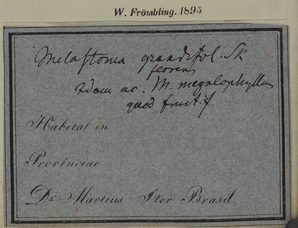 W. Frömbling. 1895
Melastoma grandifol. Sk
florens
Idem ac. M. megalophyllum
quod fructif
Habitat in
Provinciae
Dr Martius Iter Brasil.